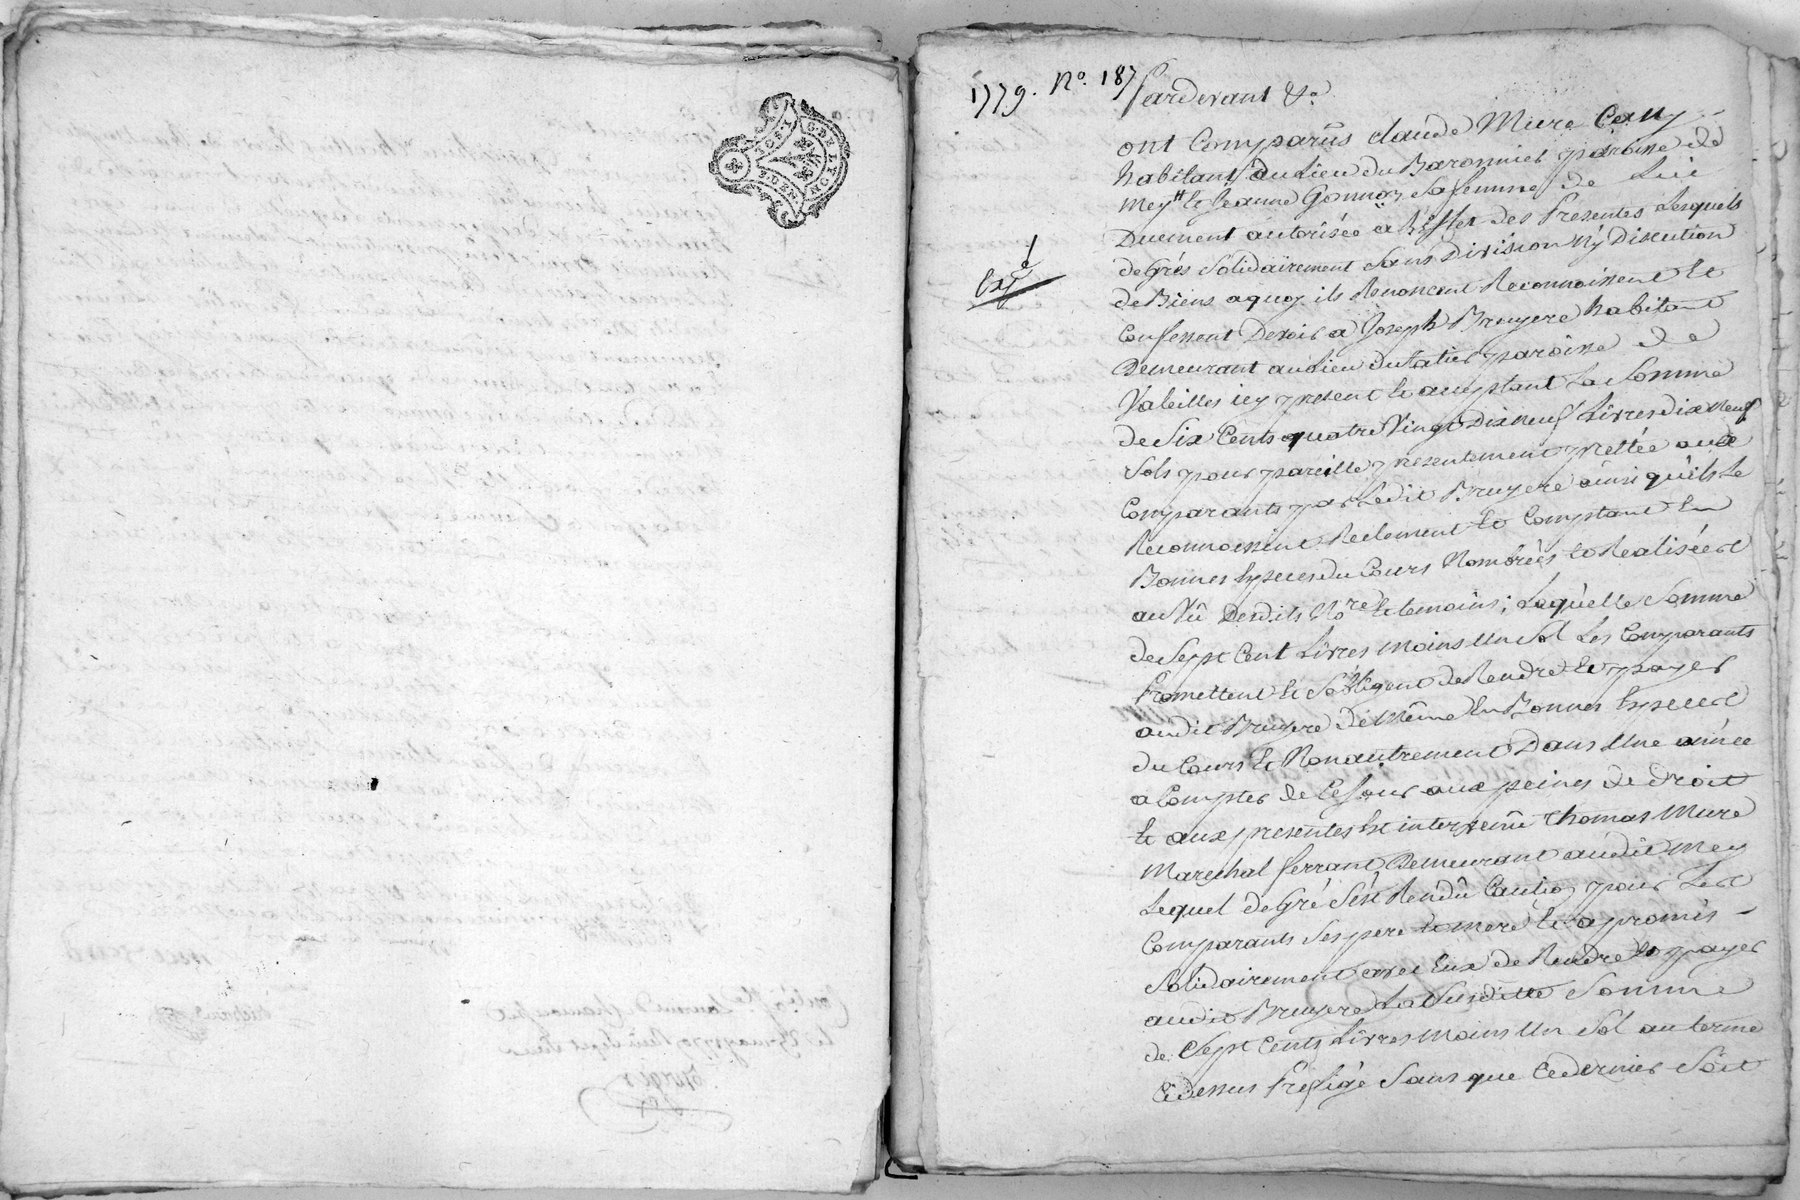 G. DE LYON
2 SOLS
8 DEN
1779. N.o 187
Pardevant &.a
ont Comparûs claude Mure
habitant au Lieu du Baronnier paroisse de
Mey et Jeanne Gonnon sa femme de Lui
Duement autorisée a l'effet des Presentes Lesquels
de Grés Solidairement Sans Division Ny Discution
de Biens a quoy ils Renoncent Reconnoissent et
Confessent Devoir a Joseph Bruyere habitant
Demeurant au Lieu du Patier paroisse de
Valeilles icy present et acceptant La Somme
de Six Cents quatre Vingt Dix Neuf Livres dix Neuf
Sols pour pareille presentement prettée aux
Comparants par Ledit Bruyere ainsi qu'ils Le
Reconnoissent Reelement et Comptant En
Bonnes Especes du Cours Nombrées et Realisées
au Vû Desdits No.re et temoins; Laquelle Somme
de Sept Cent Livres moins Un Sol Les Comparants
Promettent et S'obligent de Rendre et payer
audit Bruyere de Même En Bonnes Especes
du Cours et Non autrement Dans Une année
a Compter de Ce Jour aux peines de droit
et aux presentes Est intervenû Thomas Mure
Marechal ferrant Demeurant audit Mey
Lequel de Gré S'est Rendû Caution pour Les
Comparants Ses pere et mere et a promis
Solidairement avec Eux de Rendre et payer
audit Bruyere La Susditte Somme
de Sept Cents Livres moins Un Sol au terme
Cy dessus Prefigé Sans que Ce dernier Soit